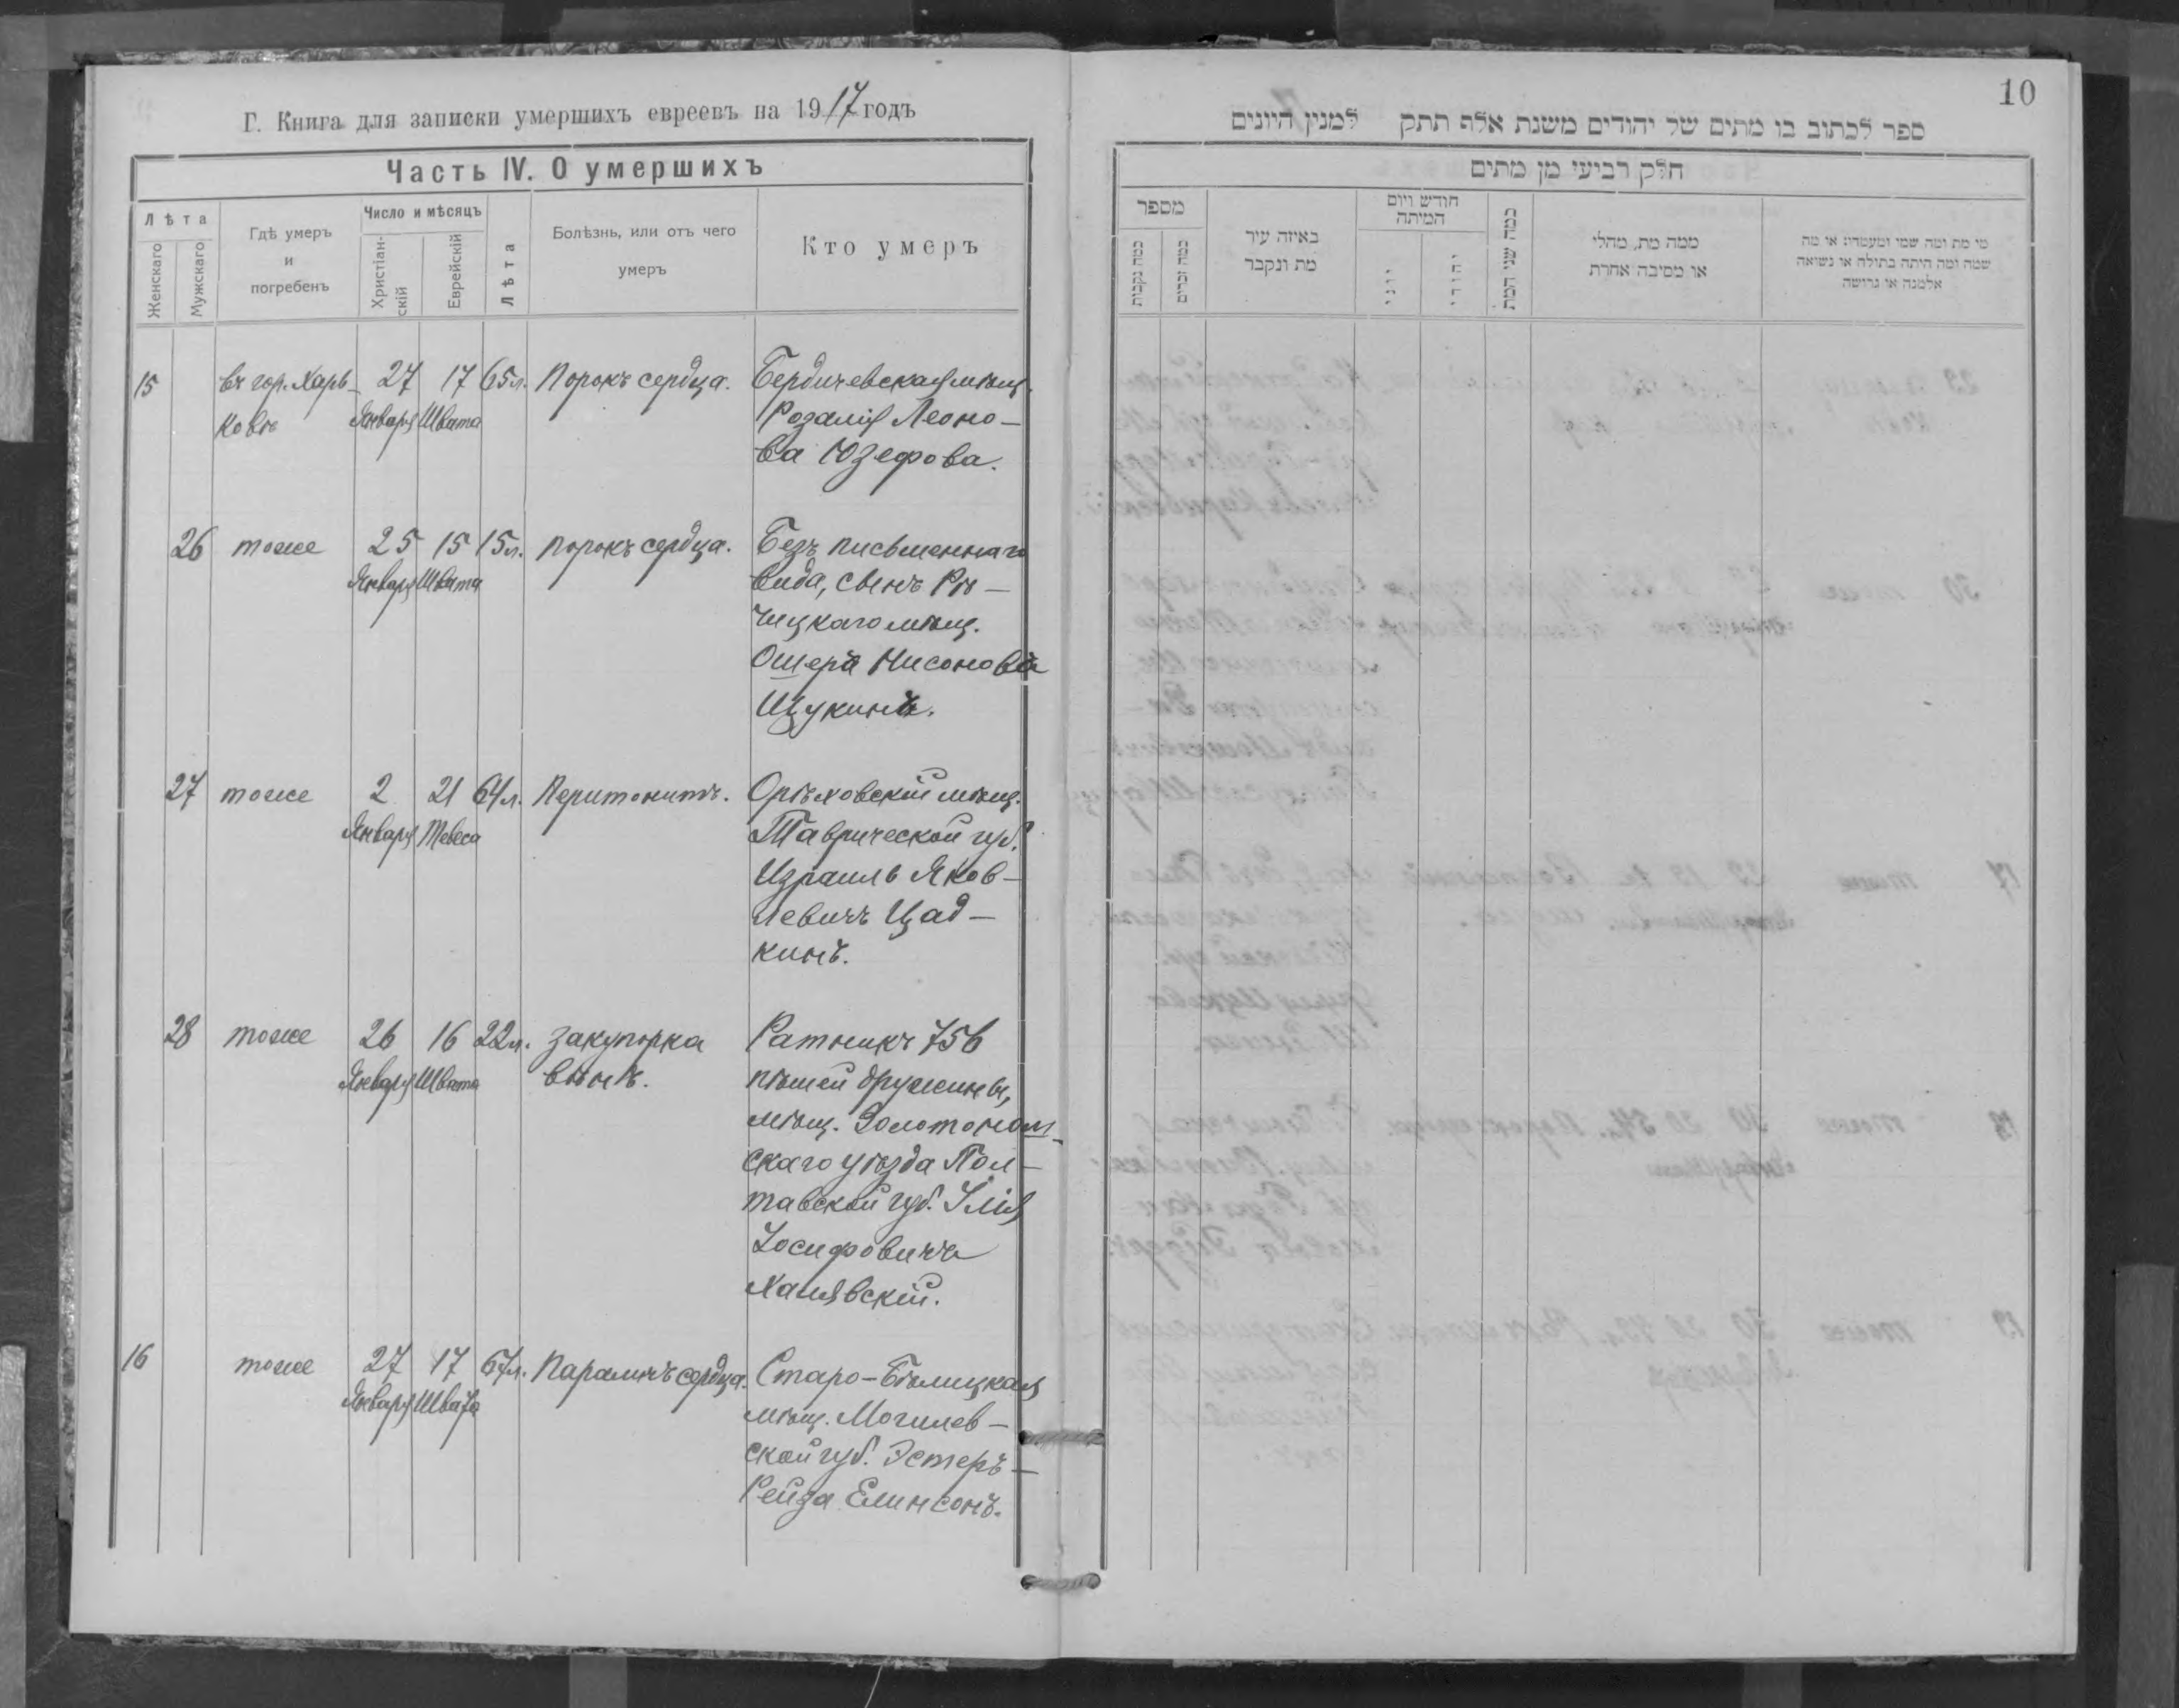 Г. Книга для записки умершихъ евреевъ на 1917 годъ
Часть IV. О умершихъ
Лѣта
Женскаго
Мужскаго
Гдѣ умеръ
и
погребенъ
Число и мѣсяцъ
Христіан-
скій
Еврейскій
Лѣта
Болѣзнь, или отъ чего
умеръ
Кто умеръ
15 въ гор. Харь- 27 17 65 л. Порокъ сердца. Бердичевская мѣщ.
ковѣ Января Швата Розалія Леоно-
ва Юзефова.
26 тоже 25 15 15 л. порокъ сердца. Безъ письменнаго
Января Швата вида, сынъ Рѣ-
чицкаго мѣщ.
Ошера Нисонова
Щукина.
27 тоже 2 21 64 л. Перитонитъ. Орѣховскій мѣщ.
Января Тевеса Таврической губ.
Израиль Яков-
левичъ Цад-
кинъ.
28 тоже 26 16 22 л. закупорка Ратникъ 756
Января Швата венъ. пѣшей дружины,
мѣщ. Золотонош-
скаго уѣзда Пол-
тавской губ. Илія
Іосифовичъ
Ханявскій.
16 тоже 27 17 67 л. Параличъ сердца. Старо-Бѣлицкая
Января Швата мѣщ. Могилев-
ской губ. Эстеръ-
Рейза Елинсонъ.
10
ספר לכתוב בו מתים של יהודים משנת אלף תתק למנין היונים
חלק רביעי מן מתים
מספר
כמה נקבות
כמה זכרים
באיזה עיר
מת ונקבר
חודש ויום
המיתה
יוני
יהודי
כמה שני המת
ממה מת, מחלי
או מסיבה אחרת
מי מת ומה שמו ומעמדו: או מה
שמה ומה היתה בתולה או נשואה
אלמנה או גרושה